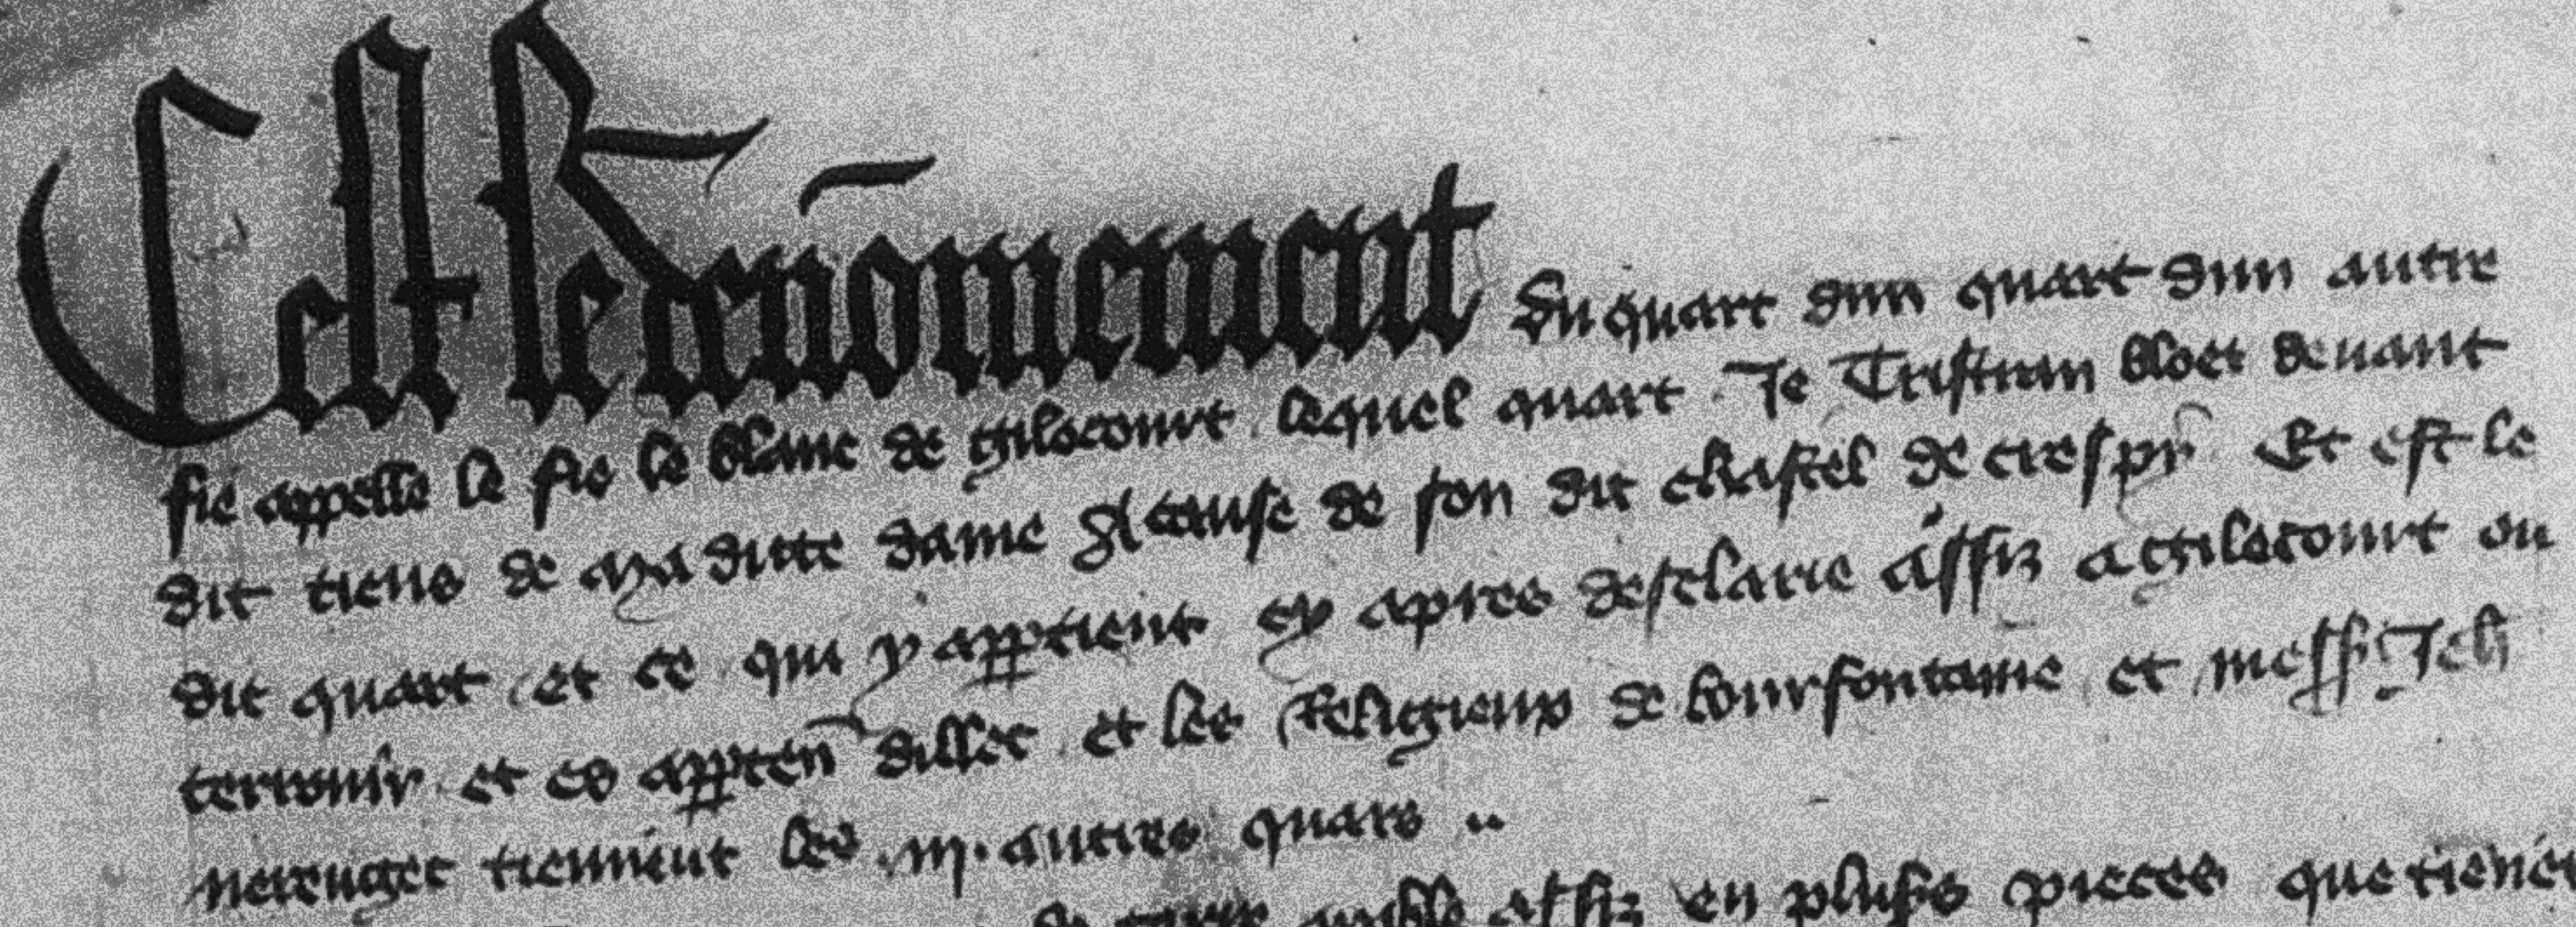 Cest le denomement du quart dun quart dun autre
fie appelle le fie le blanc de gilocourt lequel quart Je Tristran bloet devant
dit tiens de ma ditte dame A cause de son dit chastel de crespy Et est le
dit quart et ce qui y appartient cy apres desclarie assiz a gilocourt ou
terrouir et es apparten dillec et les Religieux de bourfontaine et messe Jeh
tiennent les .iij. autres quars ..
assiz en pluss pieces que tienent